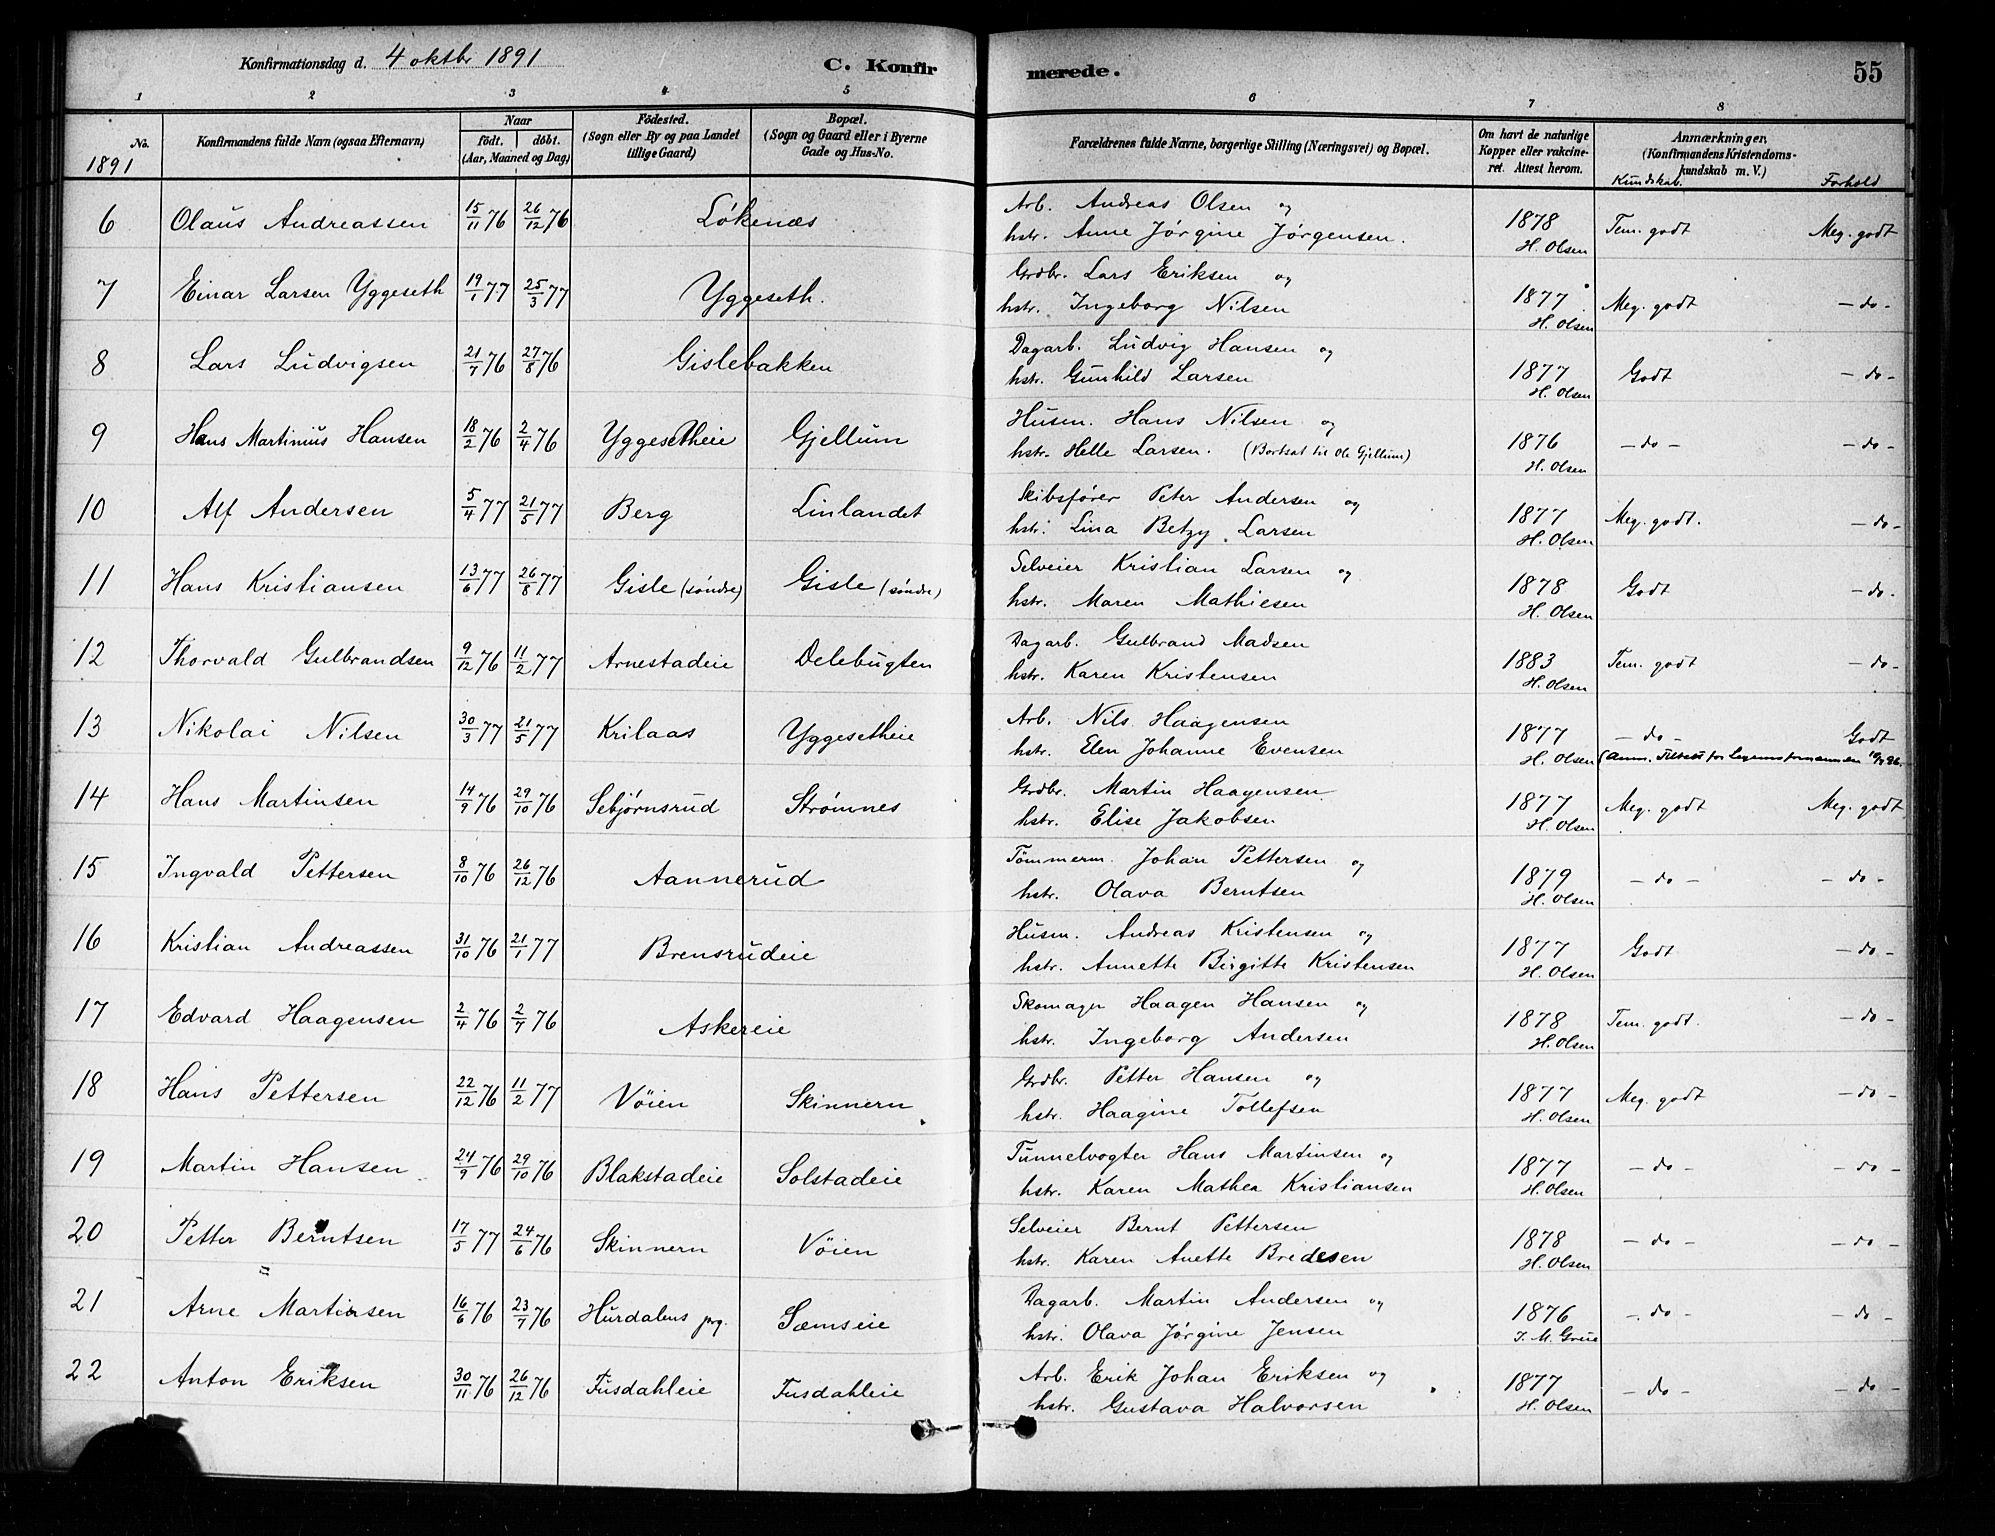 Konfirmationsdag d. 4 oktbr 1891
C. Konfirmerede.
55
1 2 3 4 5 6 7 8
No. 1891
Konfirmandens fulde Navn (ogsaa Efternavn)
Naar
födt. döbt.
(Aar, Maaned og Dag)
Födested.
(Sogn eller By og paa Landet
tillige Gaard)
Bopæl.
(Sogn og Gaard eller i Byerne
Gade og Hus-No.
Forældrenes fulde Navne, borgerlige Stilling (Næringsvei) og Bopæl.
Om havt de naturlige
Kopper eller vakcine-
ret. Attest herom.
Anmærkninger,
(Konfirmandens Kristendoms-
kundskab m. V.)
Kundskab. Forhold
6 Olaus Andreassen 15/11 76 26/12 76 Løkenæs Arb. Andreas Olsen og
hstr. Anne Jørgine Jørgensen. 1878 H. Olsen Tem. godt Meg. godt
7 Einar Larsen Yggeseth 19/1 77 25/3 77 Yggeseth. Grdbr. Lars Eriksen og
hstr. Ingeborg Nilsen 1877 H. Olsen Meg. godt - do -
8 Lars Ludvigsen 21/7 76 27/8 76 Gislebakken Dagarb. Ludvig Hansen og
hstr. Gunhild Larsen 1877 H. Olsen Godt - do -
9 Hans Martinius Hansen 18/2 76 2/4 76 Yggesetheie Gjellum Husm. Hans Nilsen og
hstr. Helle Larsen. (Bortsat til Ole Gjellum) 1876 H. Olsen - do - - do -
10 Alf Andersen 5/4 77 21/5 77 Berg Linlandet Skibsfører Peter Andersen og
hstr. Lina Betzy Larsen 1877 H. Olsen Meg. godt. - do -
11 Hans Kristiansen 13/6 77 26/8 77 Gisle (søndre) Gisle (søndre) Selveier Kristian Larsen og
hstr. Maren Mathiesen 1878 H. Olsen Godt - do -
12 Thorvald Gulbrandsen 9/12 76 11/2 77 Arnestadeie Delebugten Dagarb. Gulbrand Madsen
hstr. Karen Kristensen 1883 H. Olsen Tem. godt - do -
13 Nikolai Nilsen 30/3 77 21/5 77 Krilaas Yggesetheie Arb. Nils Haagensen
hstr. Elen Johanne Evensen 1877 H. Olsen - do - Godt
14 Hans Martinsen 14/9 76 29/10 76 Sebjørnsrud Strømnes Grdbr. Martin Haagensen
hstr. Elise Jakobsen 1877 H. Olsen Meg. godt Meg. godt
15 Ingvald Pettersen 8/10 76 26/12 76 Aannerud Tømmerm. Johan Pettersen og
hstr. Olava Berntsen 1879 H. Olsen - do - - do -
16 Kristian Andreassen 31/10 76 21/1 77 Brensrudeie Husm. Andreas Kristensen og
hstr. Annette Birgitte Kristensen 1877 H. Olsen Godt - do -
17 Edvard Haagensen 2/4 76 2/7 76 Askereie Skomager Haagen Hansen og
hstr. Ingeborg Andersen 1878 H. Olsen Tem. godt. - do -
18 Hans Pettersen 22/12 76 11/2 77 Vöien Skinnern Grdbr. Petter Hansen og
hstr. Haagine Tollefsen 1877 H. Olsen Meg. godt - do -
19 Martin Hansen 24/9 76 29/10 76 Blakstadeie Solstadeie Tunnelvogter Hans Martinsen og
hstr. Karen Mathea Kristiansen 1877 H. Olsen - do - - do -
20 Petter Berntsen 17/5 77 24/6 76 Skinnern Vöien Selveier Bernt Pettersen
hstr. Karen Anette Bredesen 1878 H. Olsen - do - - do -
21 Arne Martinsen 16/6 76 23/7 76 Hurdalens prg. Sæmseie Dagarb. Martin Andersen og
hstr. Olava Jørgine Jensen 1876 J. M. Grüe - do - - do -
22 Anton Eriksen 30/11 76 26/12 76 Fusdahleie Fusdahleie Arb. Erik Johan Eriksen og
hstr. Gustava Halvorsen 1877 H. Olsen - do - - do -